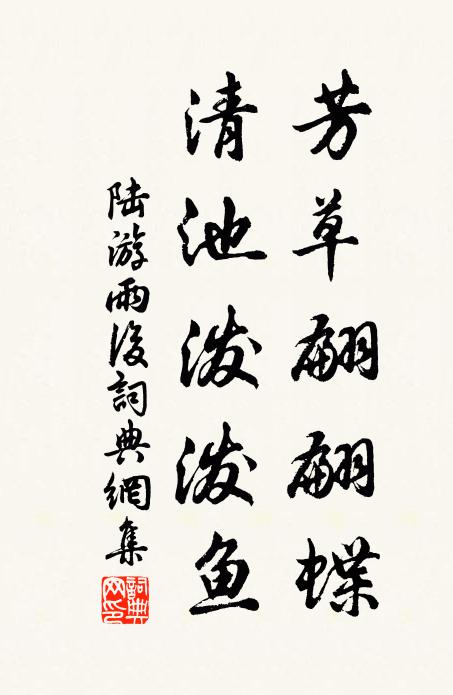 芳草翩翩蝶
清池泼泼鱼
陆游雨后詞典網集
詞典网印